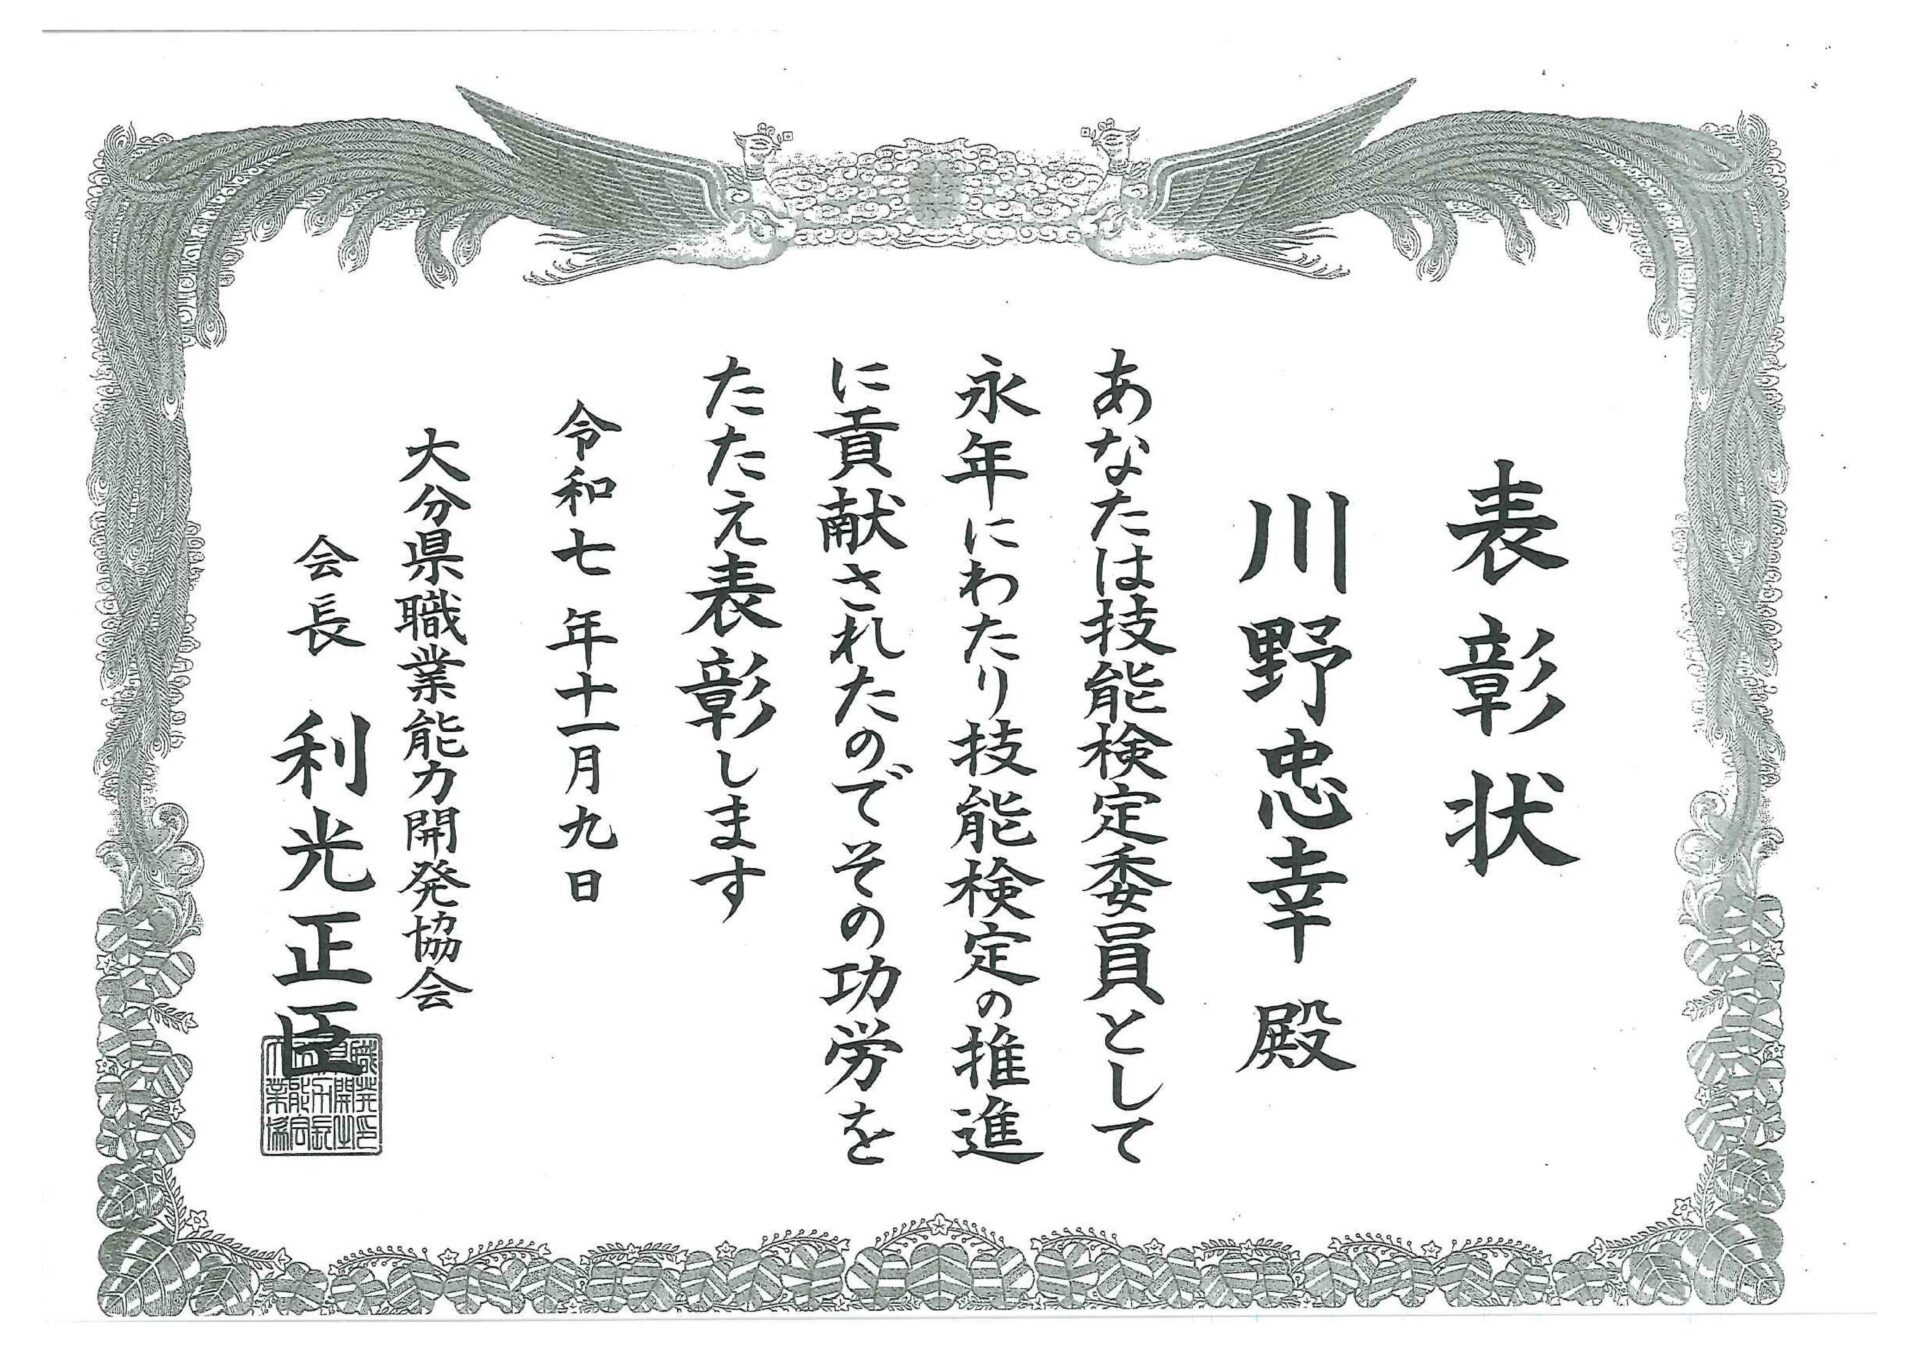 表彰状
川野忠幸 殿
あなたは技能検定委員として
永年にわたり技能検定の推進
に貢献されたのでその功労を
たたえ表彰します
令和七年十一月九日
大分県職業能力開発協会
会長 利光正臣